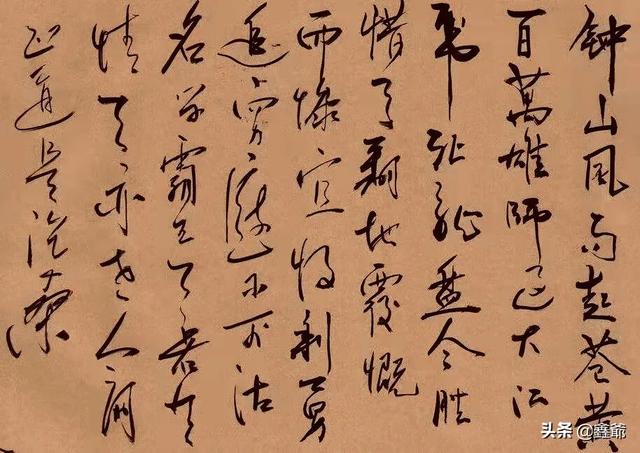 钟山风雨起苍黄
百萬雄师过大江
虎踞龙盘今胜
惜天翻地覆慨
而慷宜将剩勇
追穷寇不可沽
名学霸王天若有
情天亦老人间
正道是沧桑
头条 @鑫爺